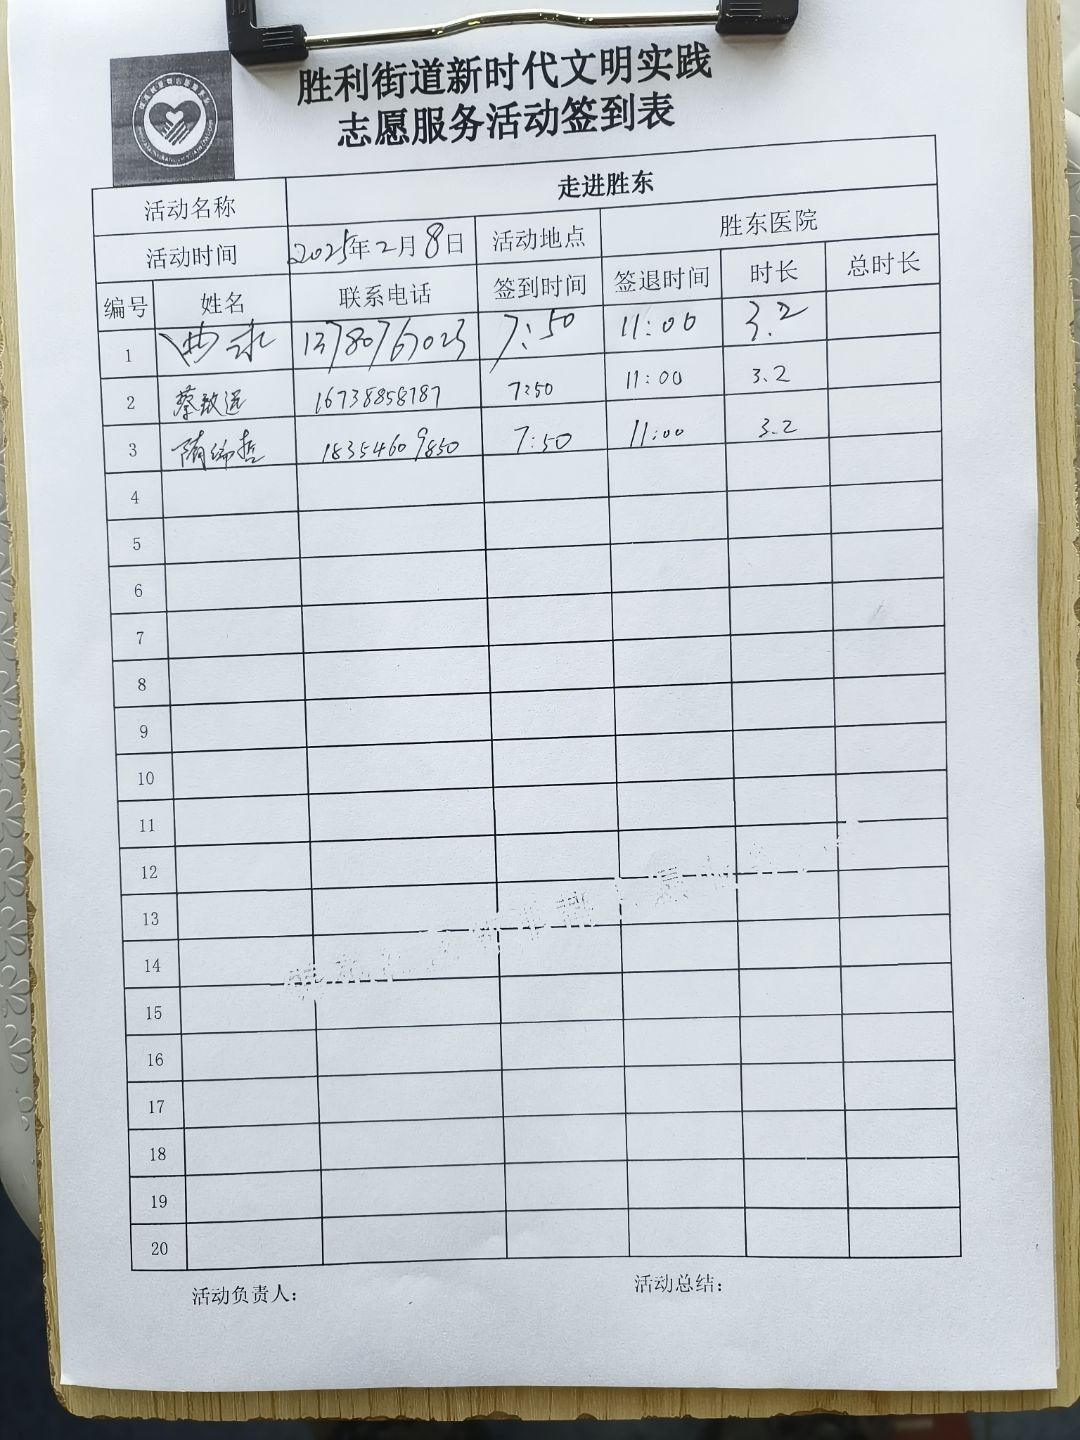 胜利街道新时代文明实践
志愿服务活动签到表
活动名称 走进胜东
活动时间 2025年2月8日 活动地点 胜东医院
编号 姓名 联系电话 签到时间 签退时间 时长 总时长
1 13780767023 7:50 11:00 3.2
2 蔡致远 16738858787 7:50 11:00 3.2
3 隋绵哲 18354609850 7:50 11:00 3.2
4
5
6
7
8
9
10
11
12
13
14
15
16
17
18
19
20
活动负责人： 活动总结：